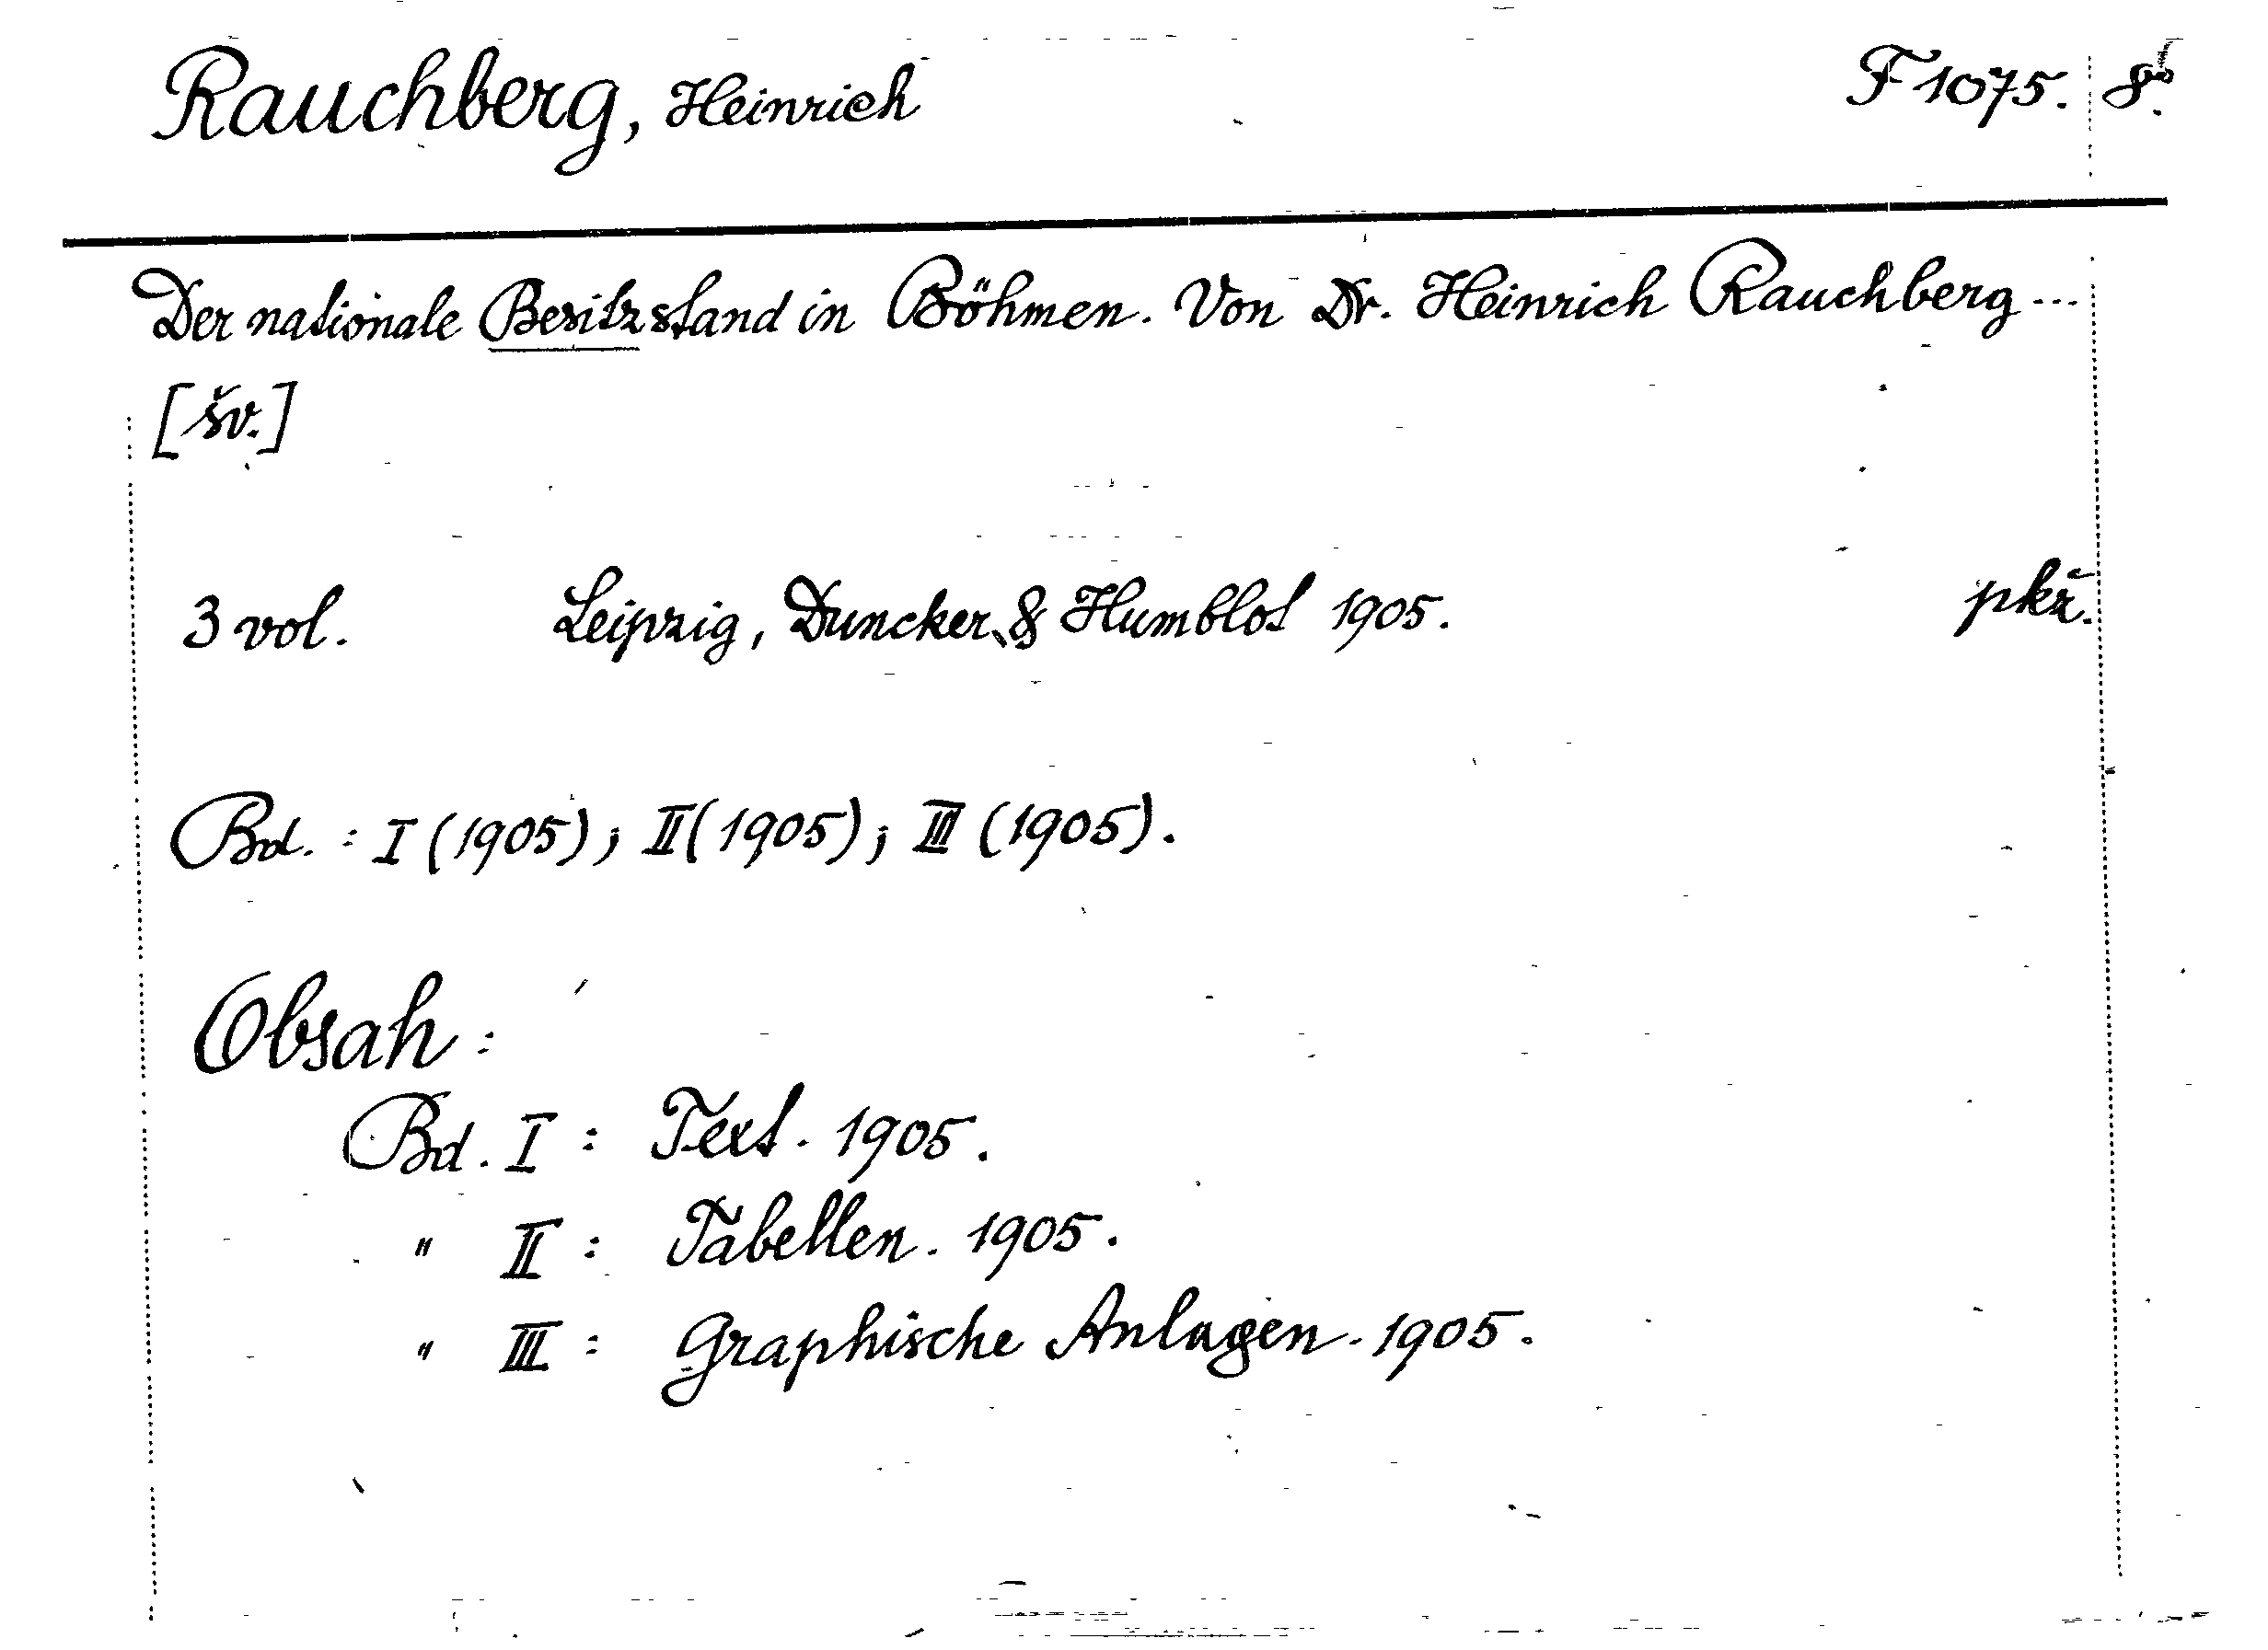 Rauchberg, Heinrich F 1075. 8°.
Der nationale Besitzstand in Böhmen. Von Dr. Heinrich Rauchberg ...
[šv.]
3 vol. Leipzig, Duncker & Humblot 1905. pkž.
Bd. : I (1905); II (1905); III (1905).
Obsah :
Bd. I : Text. 1905.
" II : Tabellen. 1905.
" III : Graphische Anlagen. 1905.